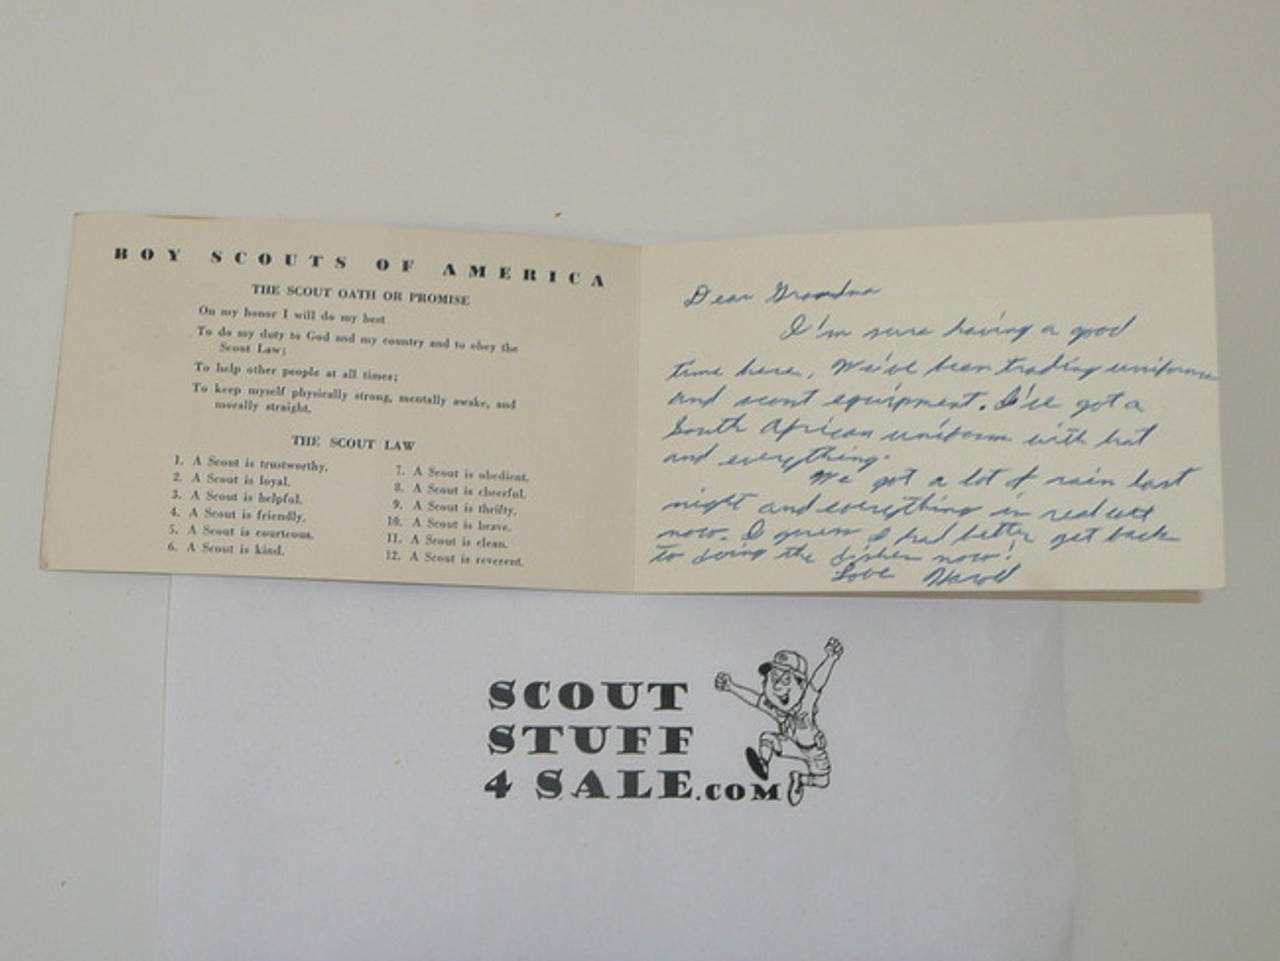 BOY SCOUTS OF AMERICA
THE SCOUT OATH OR PROMISE
On my honor I will do my best
To do my duty to God and my country and to obey the
Scout Law;
To help other people at all times;
To keep myself physically strong, mentally awake, and
morally straight.
THE SCOUT LAW
1. A Scout is trustworthy.
2. A Scout is loyal.
3. A Scout is helpful.
4. A Scout is friendly.
5. A Scout is courteous.
6. A Scout is kind.
7. A Scout is obedient.
8. A Scout is cheerful.
9. A Scout is thrifty.
10. A Scout is brave.
11. A Scout is clean.
12. A Scout is reverent.
Dear Grandma
I'm sure having a good
time here, We've been trading uniforms
and scout equipment. I've got a
South African uniform with hat
and everything.
We got a lot of rain last
night and everything is real wet
now. I guess I had better get back
to doing the dishes now!
Love Harold
SCOUT
STUFF
4 SALE.COM